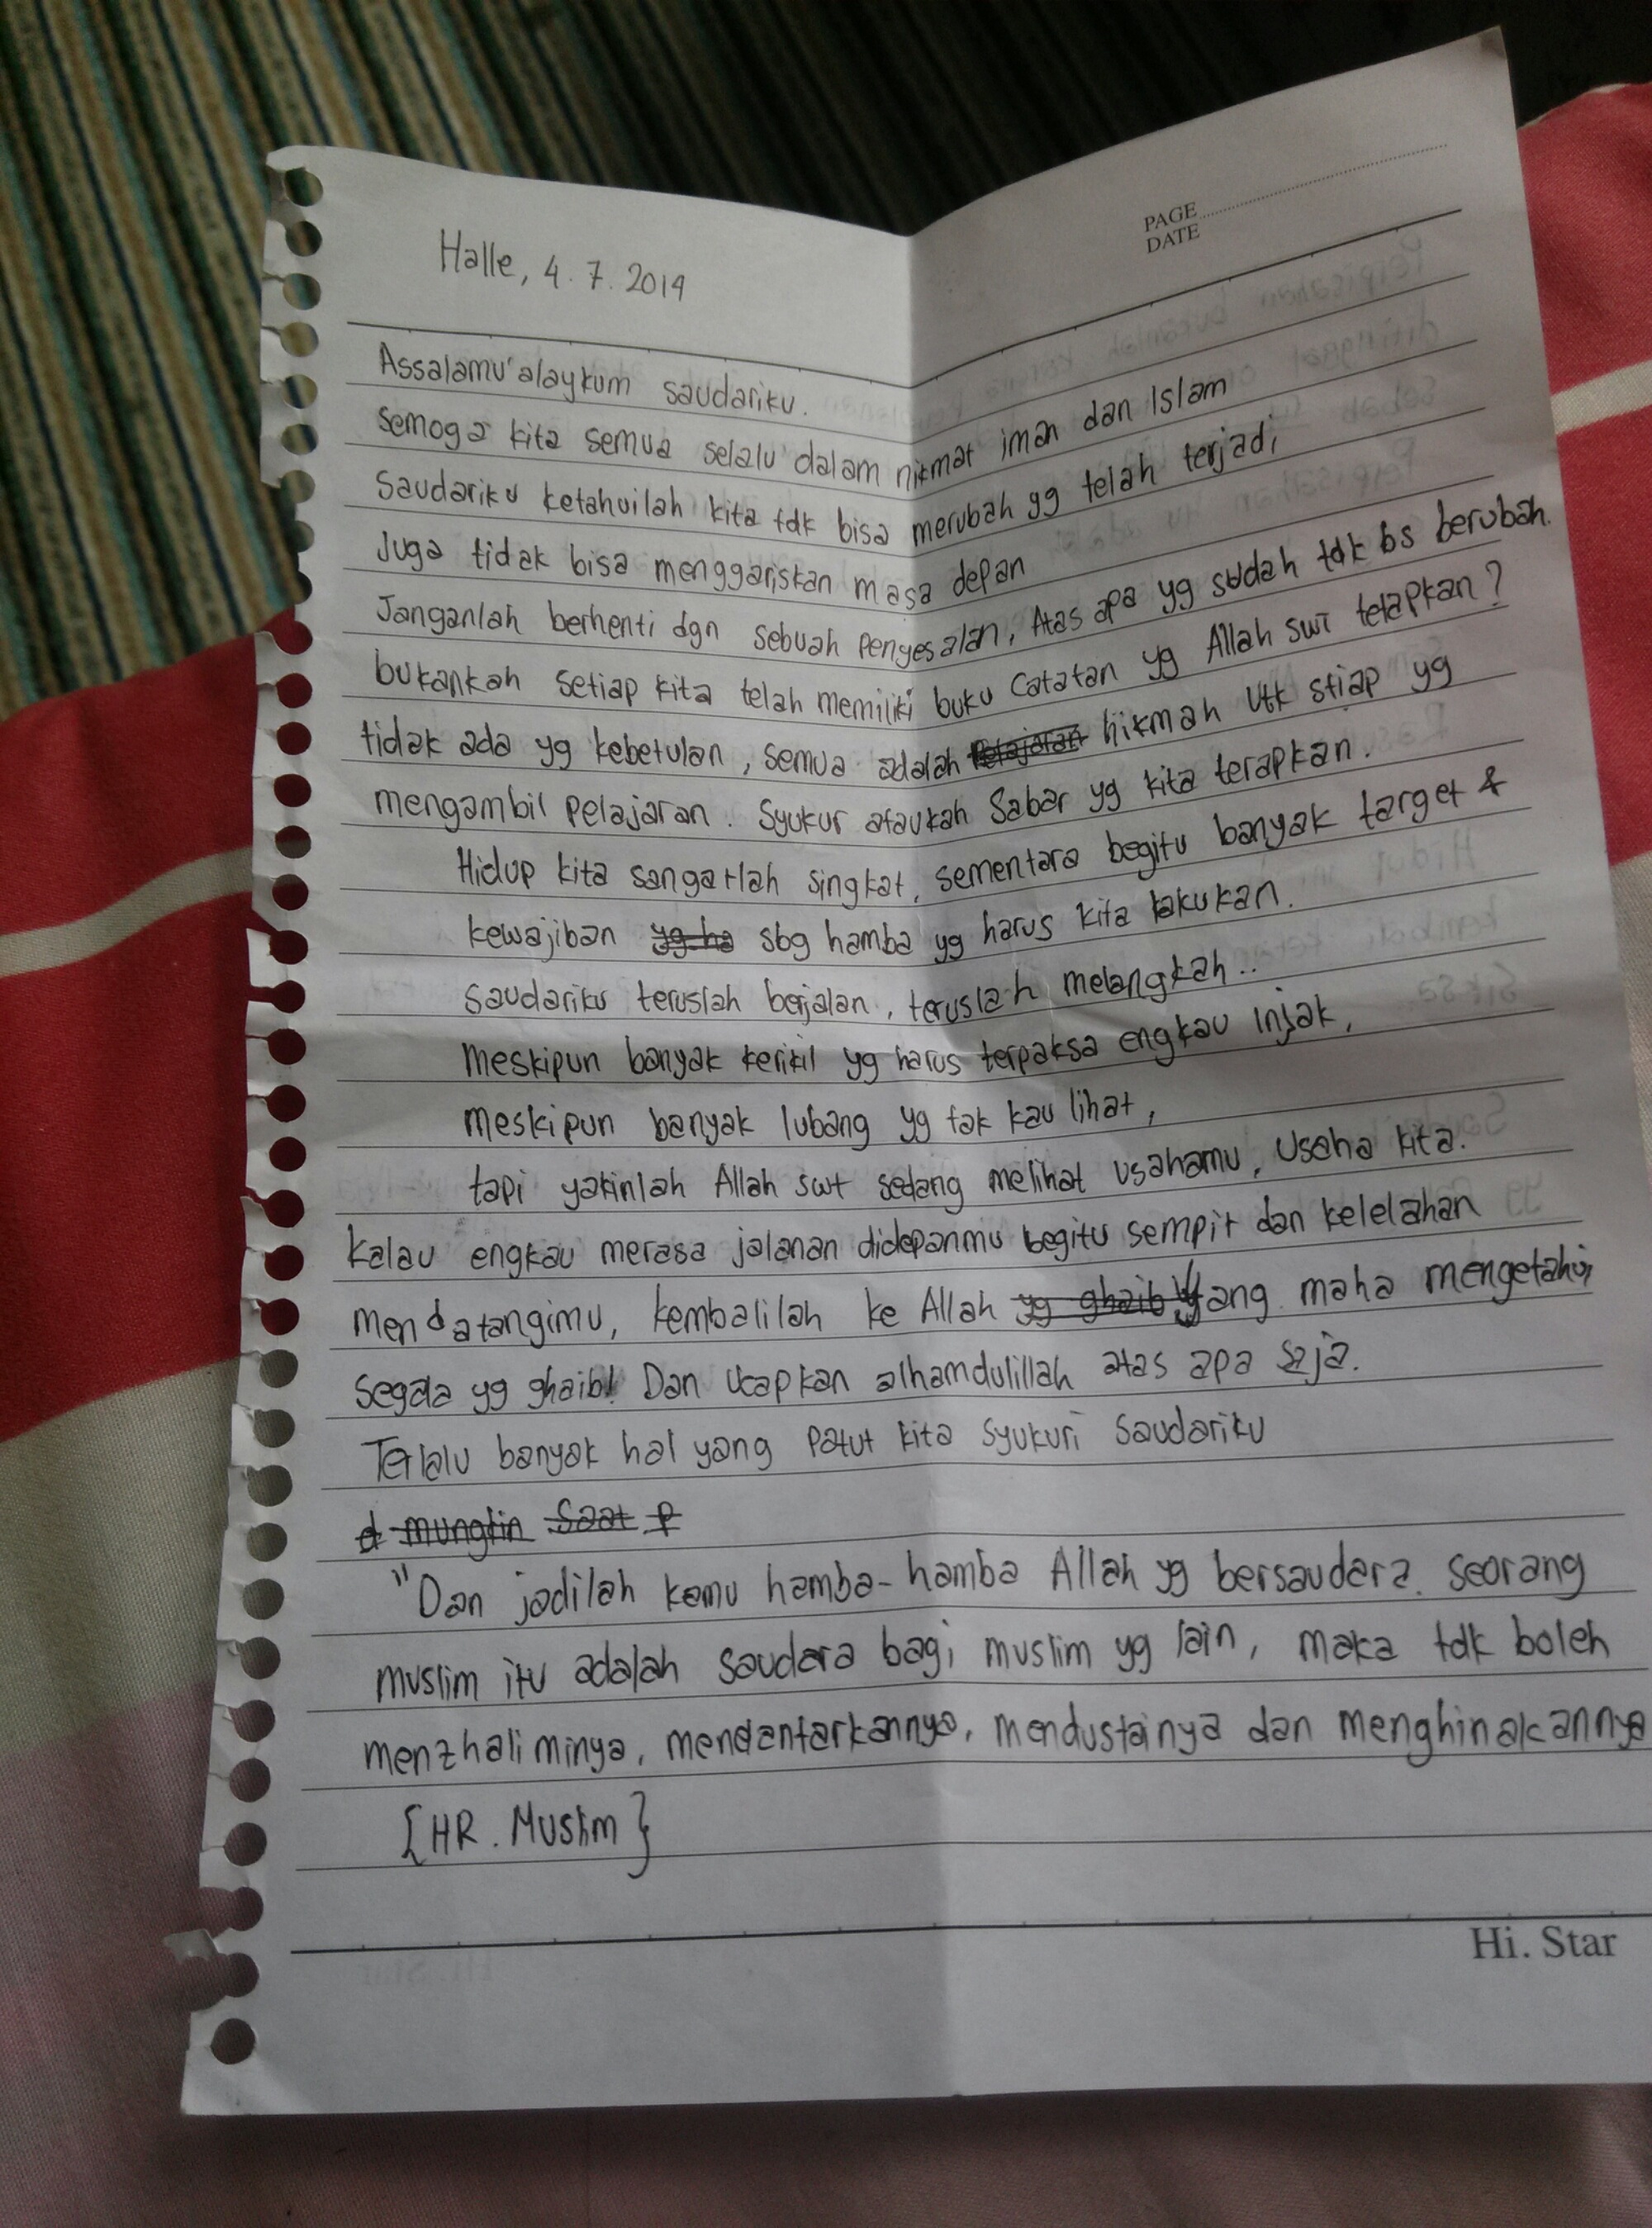 PAGE
DATE
Halle, 4.7.2014
Assalamu'alaykum saudariku.
semoga kita semua selalu dalam nikmat iman dan Islam
Saudariku ketahuilah kita tdk bisa merubah yg telah terjadi,
Juga tidak bisa menggariskan masa depan
Janganlah berhenti dgn sebuah penyesalan, Atas apa yg sudah tdk bs berubah.
bukankah setiap kita telah memiliki buku catatan yg Allah swt tetapkan?
tidak ada yg kebetulan, semua adalah pelajaran hikmah utk stiap yg
mengambil pelajaran. Syukur ataukah Sabar yg kita terapkan.
Hidup kita sangatlah singkat, sementara begitu banyak target &
kewajiban yg ha sbg hamba yg harus kita lakukan.
saudariku teruslah berjalan, teruslah melangkah..
meskipun banyak kerikil yg harus terpaksa engkau injak,
meskipun banyak lubang yg tak kau lihat,
tapi yakinlah Allah swt sedang melihat usahamu, usaha kita.
kalau engkau merasa jalanan didepanmu begitu sempit dan kelelahan
mendatangimu, kembalilah ke Allah yg ghaib Yang maha mengetahui
segala yg ghaib! Dan ucapkan alhamdulillah atas apa saja.
Terlalu banyak hal yang patut kita syukuri saudariku
d mungkin saat p
"Dan jadilah kamu hamba-hamba Allah yg bersaudara. seorang
muslim itu adalah saudara bagi muslim yg lain, maka tdk boleh
menzhaliminya, menelantarkannya, mendustainya dan menghinakannya
{HR. Muslim}
Hi. Star